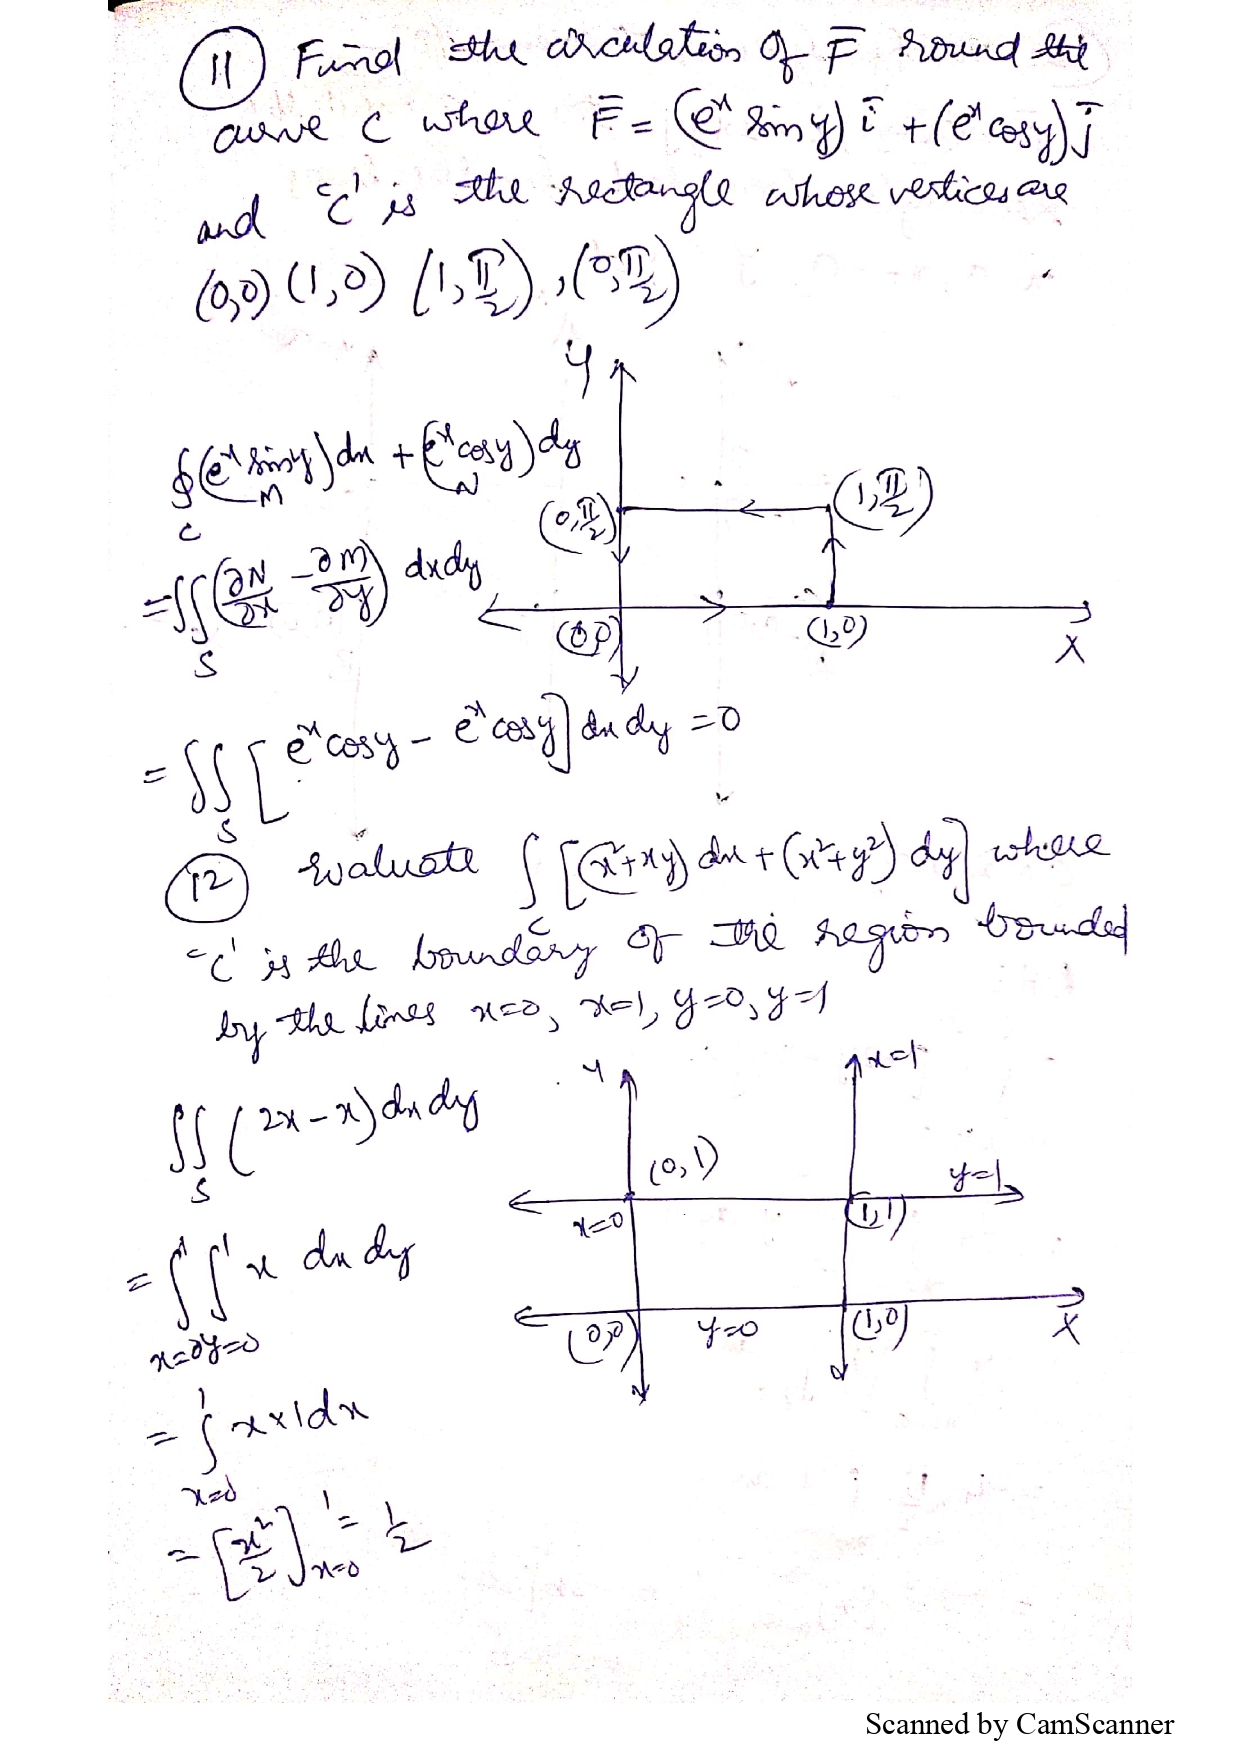 (11) Find the circulation of F̄ round the
curve C where F̄ = (eˣ sin y) ī + (eˣ cos y) j̄
and 'C' is the rectangle whose vertices are
(0,0) (1,0) (1, π/2), (0, π/2)
Y
∮_C (eˣ sin y) dx + (eˣ cos y) dy
M N
(0, π/2) (1, π/2)
= ∬_S (∂N/∂x - ∂M/∂y) dx dy
(0,0) (1,0) X
= ∬_S [eˣ cos y - eˣ cos y] dx dy = 0
(12) Evaluate ∫_C [(x²+xy) dx + (x²+y²) dy] where
'C' is the boundary of the region bounded
by the lines x=0, x=1, y=0, y=1
Y x=1
∬_S (2x - x) dx dy
(0,1) y=1
x=0 (1,1)
= ∫_{x=0}^{1} ∫_{y=0}^{1} x dx dy
(0,0) y=0 (1,0) X
= ∫_{x=0}^{1} x×1 dx
= [x²/2]_{x=0}^{1} = 1/2
Scanned by CamScanner